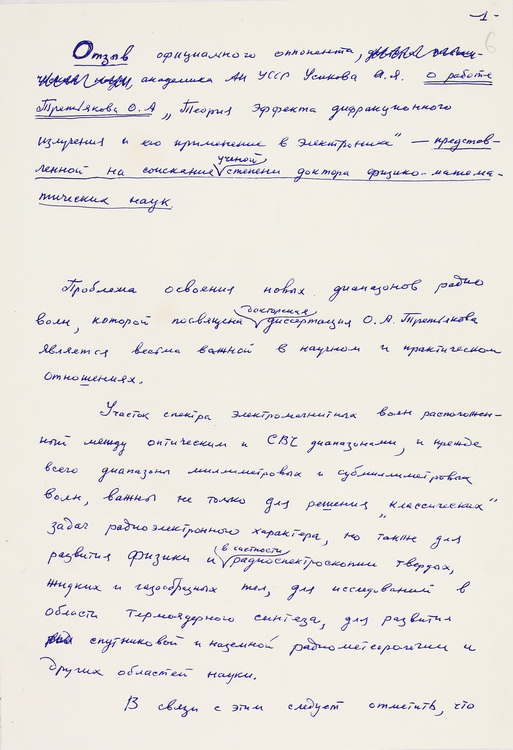 -1-
6
Отзыв официального оппонента,
академика АН УССР Усикова А.Я. о работе
Третьякова О.А „Теория Эффекта дифракционного
излучения и его применение в электронике" — представ-
ленной на соискание ученой степени доктора физико-матема-
тических наук.
Проблема освоения новых диапазонов радио
волн, которой посвящена докторская диссертация О.А. Третьякова
является весьма важной в научном и практическом
отношениях.
Участок спектра электромагнитных волн расположен-
ный между оптическим и СВЧ диапазонами, и прежде
всего диапазоны миллиметровых и субмиллиметровых
волн, важны не только для решения „классических"
задач радиоэлектронного характера, но также для
развития физики и в частности радиоспектроскопии твердых,
жидких и газообразных тел, для исследований в
области термоядерного синтеза, для развития
спутниковой и наземной радиометеорологии и
других областей науки.
В связи с этим следует отметить, что